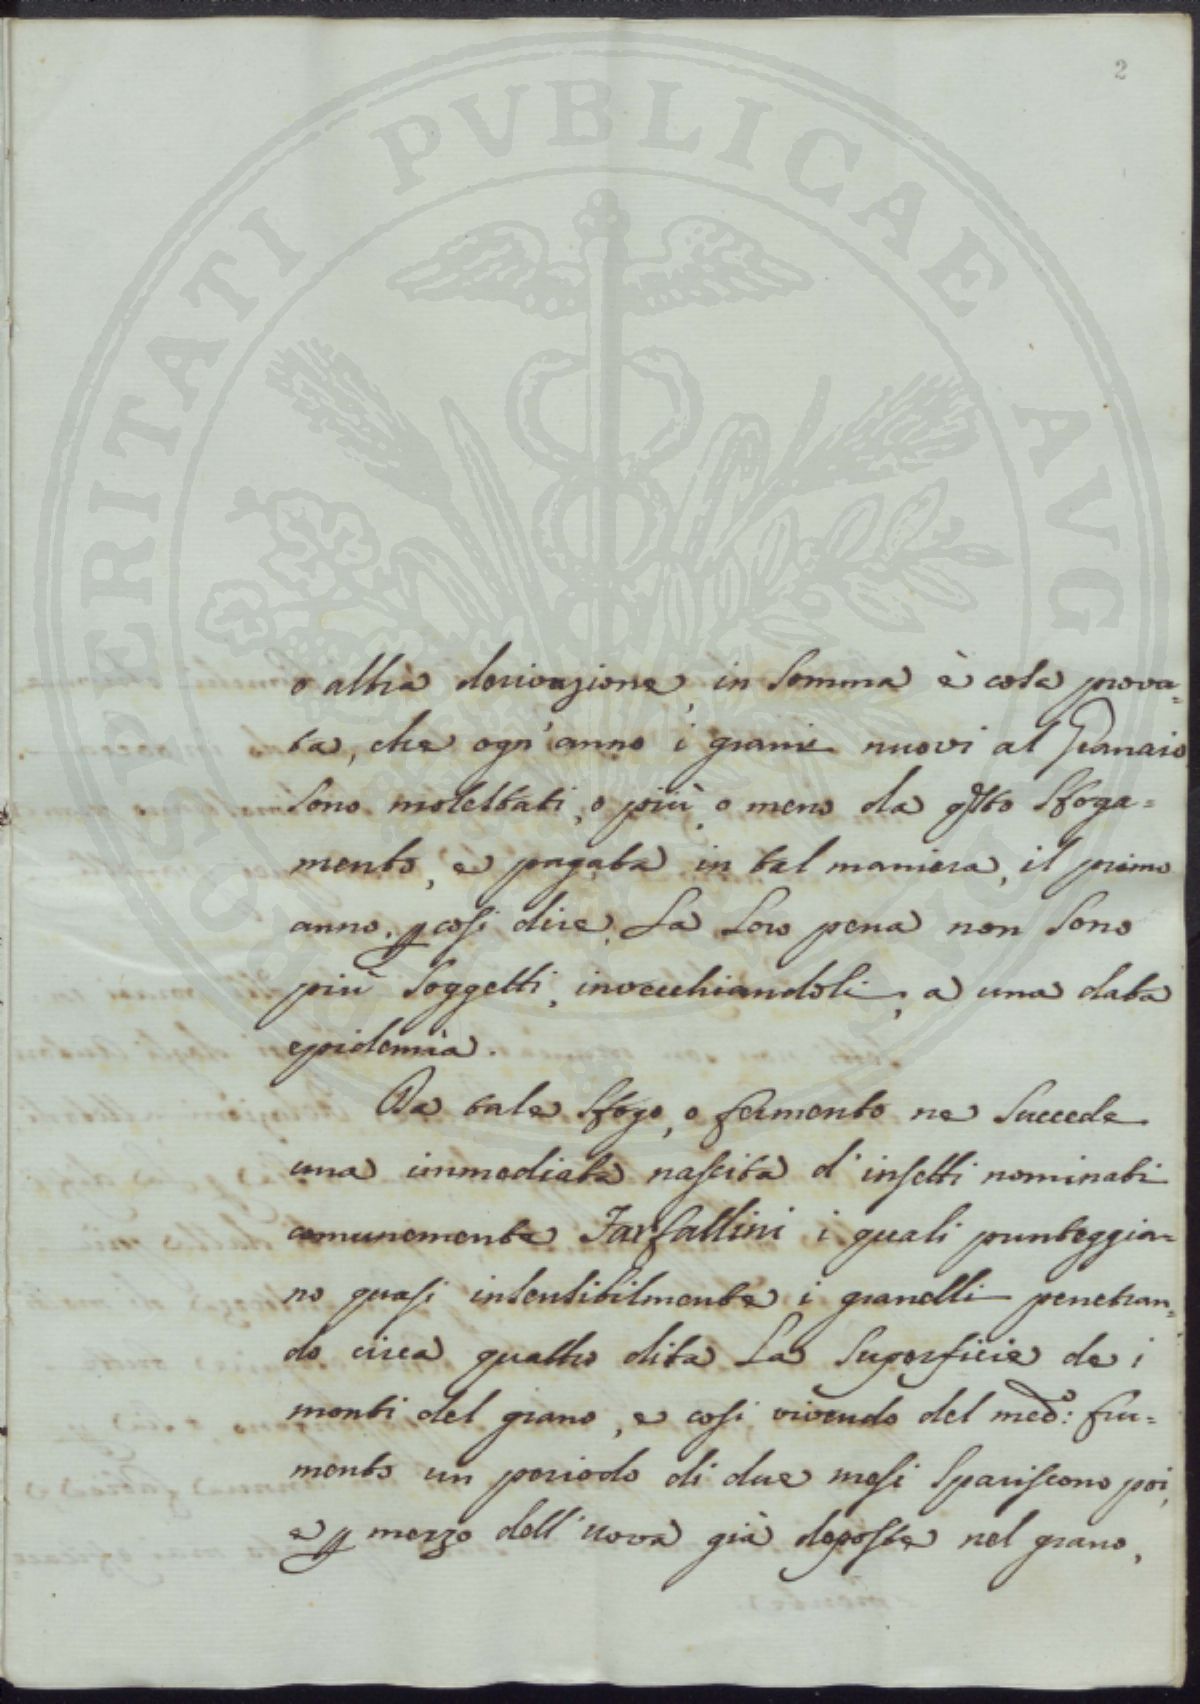 2
PROSPERITATI PVBLICAE AVG
o altra derivazione, in somma è cosa prova=
ta, che ogn'anno i grani nuovi al Granaio
sono molestati, o più, o meno da qsto sfoga=
mento, e pagata in tal maniera, il primo
anno, p così dire, La Loro pena non sono
più soggetti, invecchiandoli, a una data
epidemia.
Da tale sfogo, o fermento ne succede
una immediata nascita d'insetti nominati
comunemente Farfallini i quali punteggia=
no quasi insensibilmente i granelli penetran=
do circa quattro dita La superficie de i
monti del grano, e così vivendo del medo: fru=
mento un periodo di due mesi spariscono poi,
e p mezzo dell'uova già deposte nel grano,